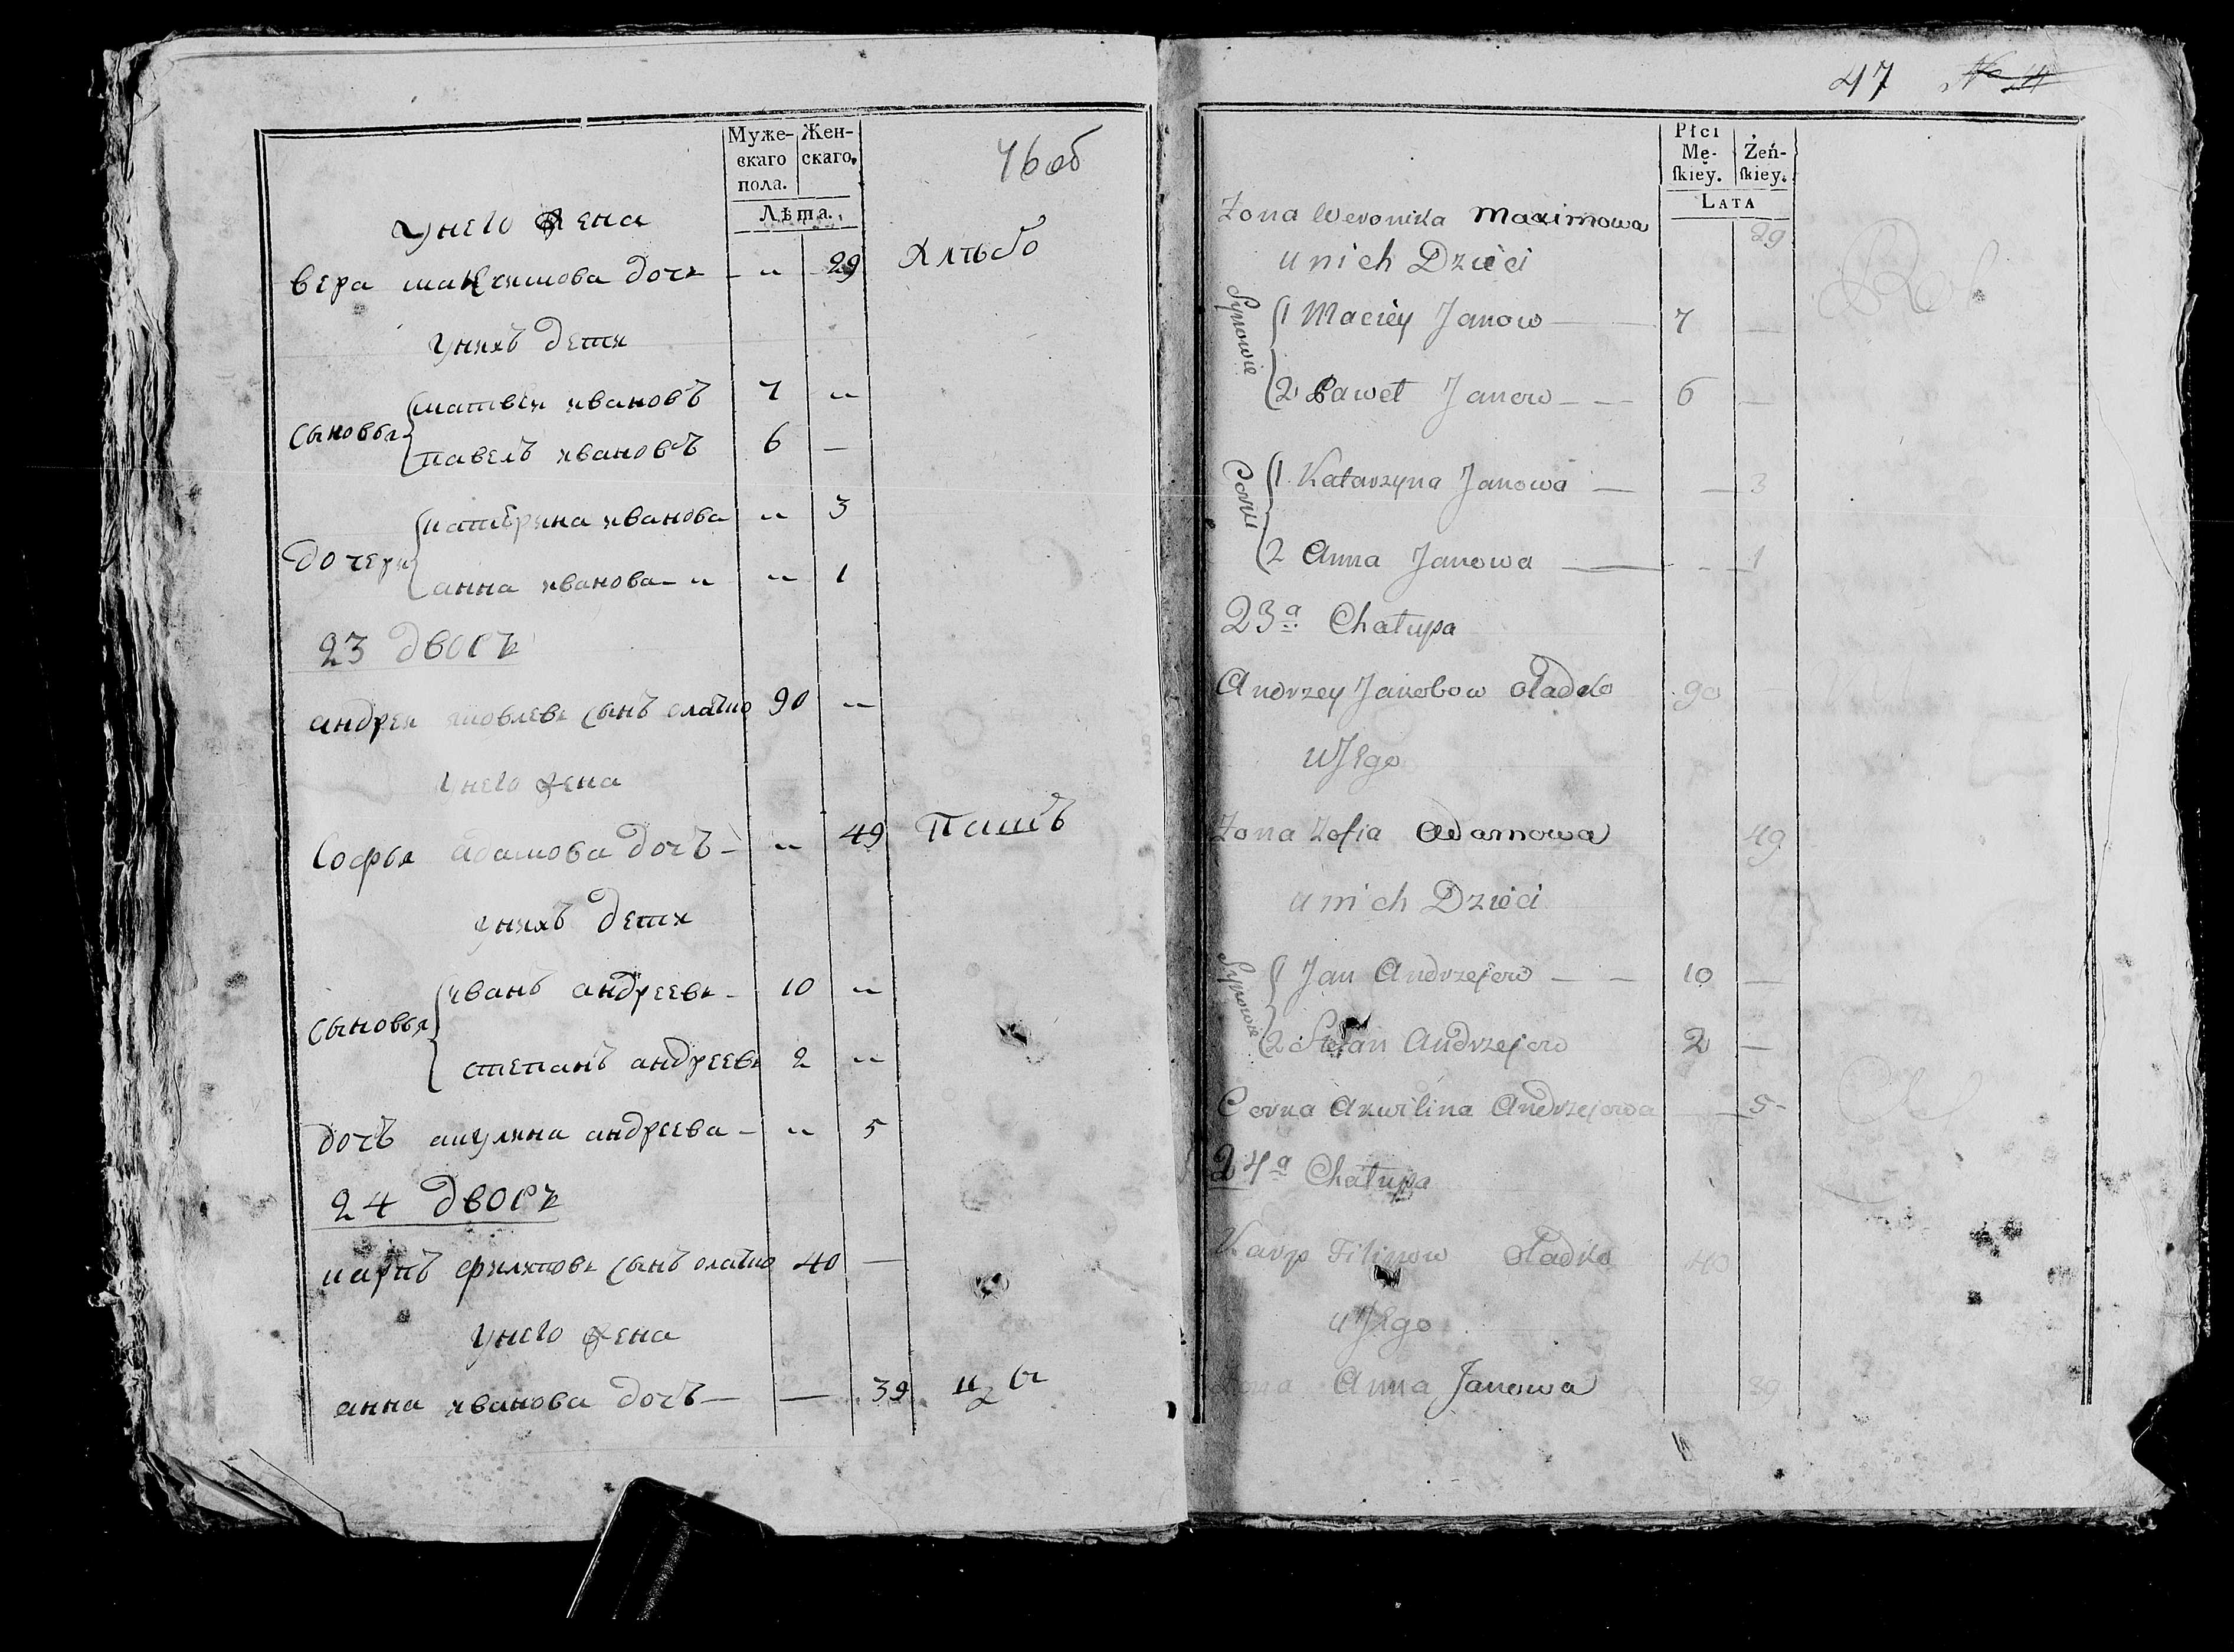 46 об
Муже-
скаго
пола.
Жен-
скаго.
Лѣта.
У него жена
вера макъсимова дочь – „ 29
У нихъ дети
Сыновья
матвеи ивановъ 7 „
павелъ ивановъ 6 –
Дочери
катерина иванова „ 3
анна иванова – „ „ 1
23 дворъ
андреи яковлевъ сынъ олатко 90 „
У него жена
Софья адамова дочъ – „ 49
У нихъ дети
Сыновья
иванъ андреевъ – 10 „
степанъ андреевъ 2 „
дочъ акулина андреева – „ 5
24 дворъ
карпъ филиповъ сынъ олатко 40 –
У него жена
анна иванова дочъ – – 39
47
Płci
Mę-
ſkiey.
Żeń-
ſkiey.
LATA
Zona Weronika Maximowa 29
u nich Dzieci
Synowie
1 Maciey Janow – 7 –
2 Paweł Janow – – 6 –
Corki
1 Katarzyna Janowa – – 3
2 Anna Janowa – – 1
23a Chałupa
Andrzey Jakobow Oładko 90 –
u Jego
Zona Zofia Adamowa 49
u nich Dzieci
Synowie
1 Jan Andrzejow – – 10 –
2 Stefan Andrzejow 2 –
Corka Akwilina Andrzejowa – 5 -
24a Chałupa
Karp Filipow Oładko 40
u Jego
Zona Anna Janowa 39